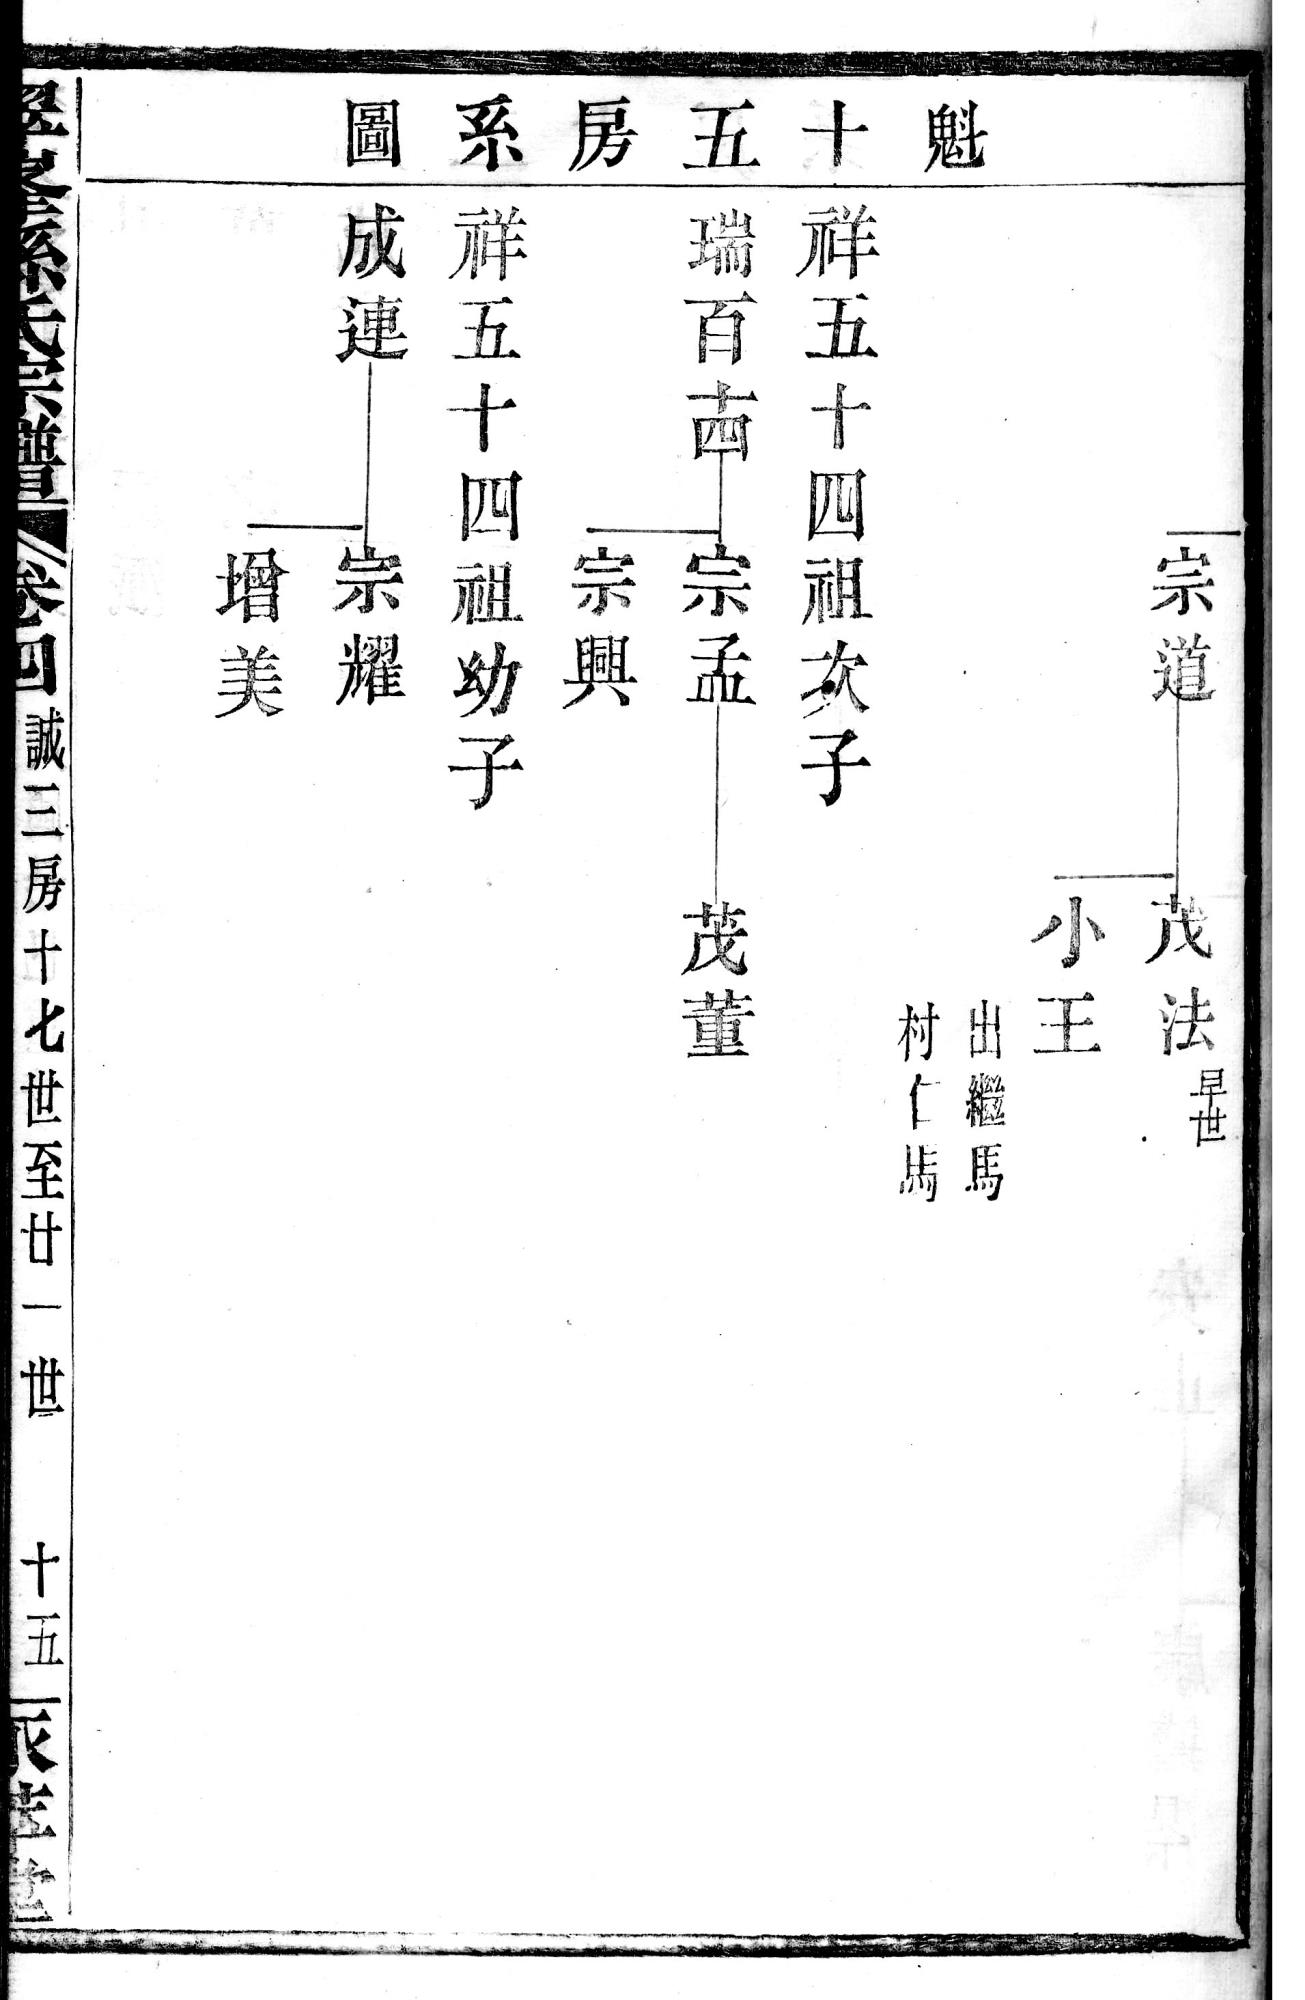 魁十五房系圖
宗道
茂法
早世
小王
出繼馬
村仁馬
祥五十四祖次子
瑞百十四
宗孟
茂董
宗興
祥五十四祖幼子
成連
宗耀
增美
孫氏宗譜
卷四
誠三房十七世至廿一世
十五
堂